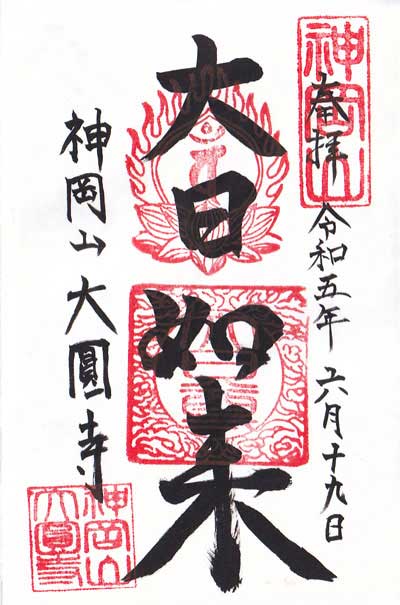 奉拝 令和五年 六月十九日
大日如来
神岡山大圓寺
神岡山
神岡山大圓寺